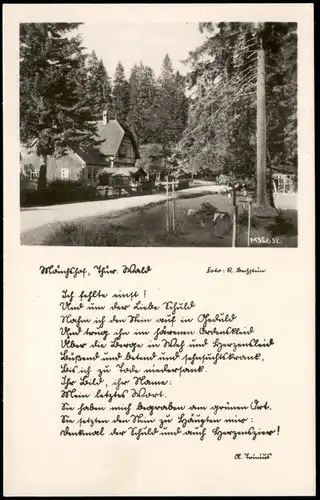 M326 SL.
Mönchshof, Thür. Wald
Foto: R. Bechstein
Ich fehlte einst!
Und um der Liebe Schuld
Nahm ich den Stein auf in Geduld
Und trug ihn im härenen Ordenskleid
Über die Berge in Weh und Herzensleid
Büßend und betend und sehnsuchtskrank,
Bis ich zu Tode niedersank.
Ihr Bild, ihr Name:
Mein letztes Wort.
Sie haben mich begraben am grünen Ort.
Sie setzten den Stein zu Häupten mir:
Denkmal der Schuld und auch Herzenszier!
A. Trinius